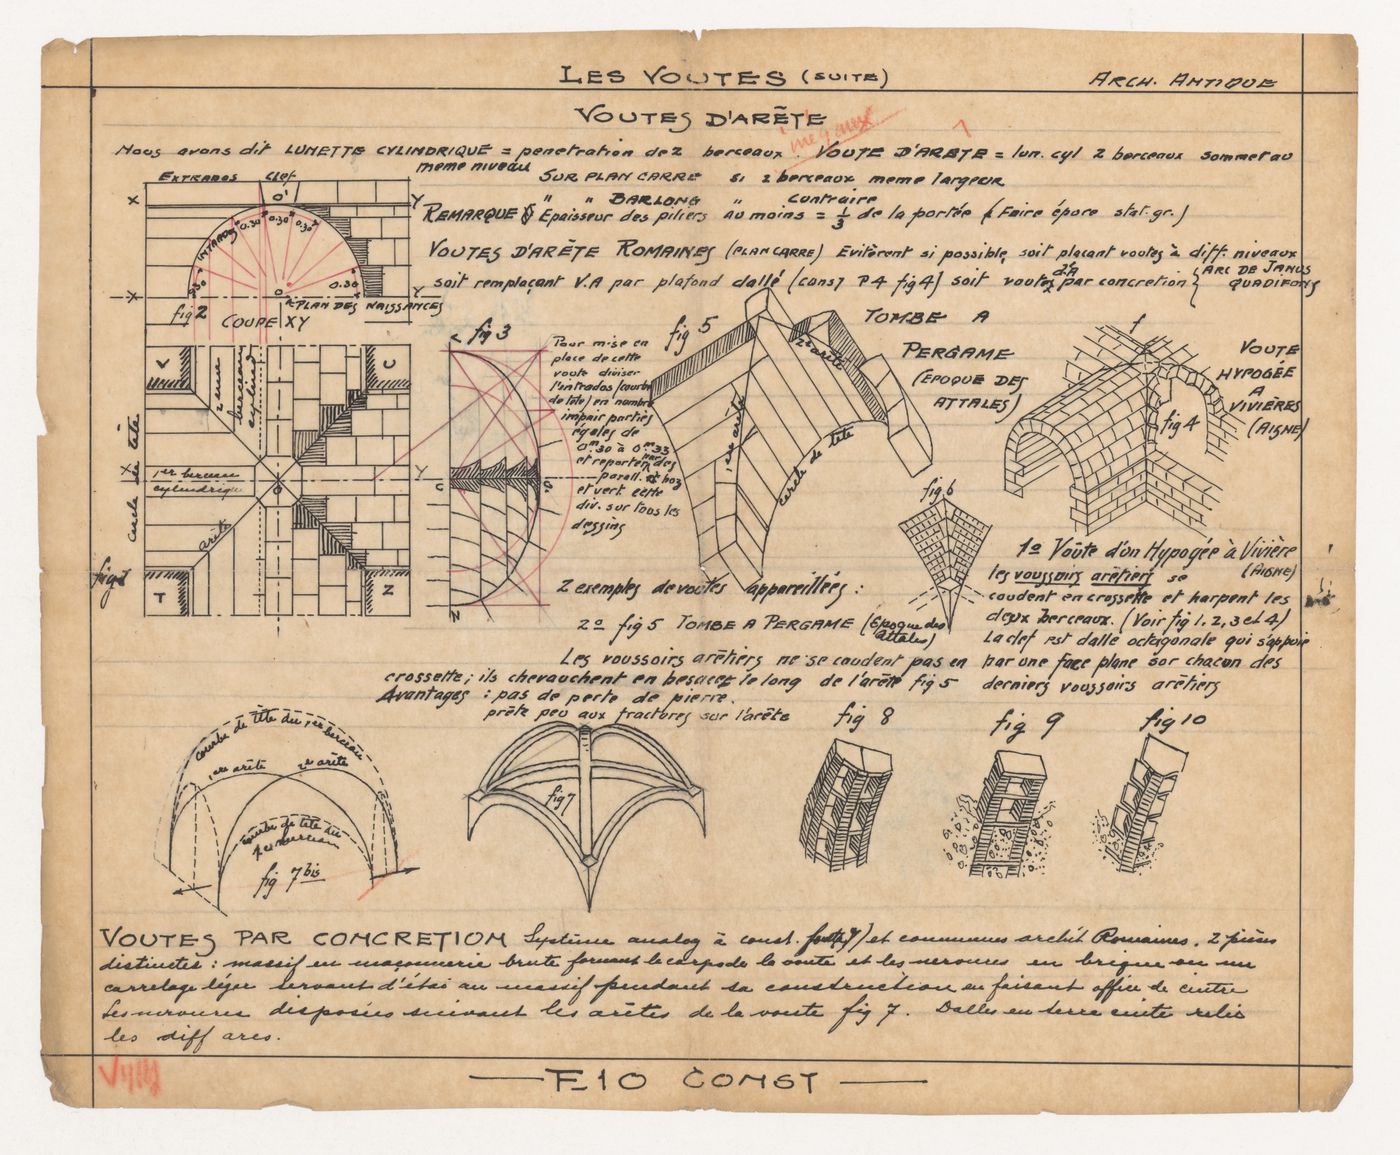 LES VOUTES (SUITE)
ARCH. ANTIQUE
VOUTES D'ARÊTE
Nous avons dit LUNETTE CYLINDRIQUE = penetration de 2 berceaux. VOUTE D'ARETE = lun. cyl 2 berceaux sommet au
meme niveau
SUR PLAN CARRE si 2 berceaux meme largeur
" " BARLONG " contraire
REMARQUE Epaisseur des piliers au moins = 1/3 de la portée (Faire épure stat. gr.)
VOUTES D'ARÈTE ROMAINES (PLAN CARRE) Evitèrent si possible, soit plaçant voutes à diff. niveaux
soit remplaçant V.A par plafond dallé (const P4 fig 4) soit voutes d'A par concretion { ARC DE JANUS
QUADIFONS
EXTRADOS Clef
X Y
O'
INTRADOS 0.30 0.30 0.30
0.30
O
X
PLAN DES NAISSANCES
fig 2
COUPE XY
V
C
2eme berceau cylind
1er berceau
cylindrique
cercle de tête
arête
X Y
O
T
Z
fig 1
fig 3
Pour mise en
place de cette
voute diviser
l'entrados (courbe
de tête) en nombre
impair parties
égales de
0m.30 à 0m.33
et reporter par des
parall. et hoz
et vert. cette
div. sur tous les
dessins
fig 5
TOMBE A
PERGAME
(EPOQUE DES
ATTALES)
2e arête
1ere arête
cercle de tête
f
fig 4
VOUTE
HYPOGÉE
A
VIVIÈRES
(AISNE)
fig 6
1º Voûte d'un Hypogée à Vivière
(AISNE)
les voussoirs arêtiers se
coudent en crossette et harpent les
deux berceaux. (Voir fig 1, 2, 3 et 4)
La clef est dalle octogonale qui s'appuie
par une face plane sur chacun des
derniers voussoirs arêtiers
2 exemples de voutes appareillées :
2º fig 5 TOMBE A PERGAME (Epoque des
Attales)
Les voussoirs arêtiers ne se coudent pas en
crossette; ils chevauchent en besace le long de l'arête fig 5
Avantages : pas de perte de pierre.
prête peu aux fractures sur l'arête
courbe de tête du 1er berceau
1ere arête 2e arête
courbe de tête du
berceau
fig 7bis
fig 7
fig 8
fig 9
fig 10
VOUTES PAR CONCRETION Système analog à const. et communes archit Romaines. 2 pièces
distinctes : massif en maçonnerie brute formant le corps de la voute et les nervures en brique ou un
carrelage léger servant d'étai au massif pendant sa construction en faisant office de cintre
Les nervures disposées suivant les arêtes de la voute fig 7. Dalles en terre cuite relie
les diff arcs.
E10 CONST